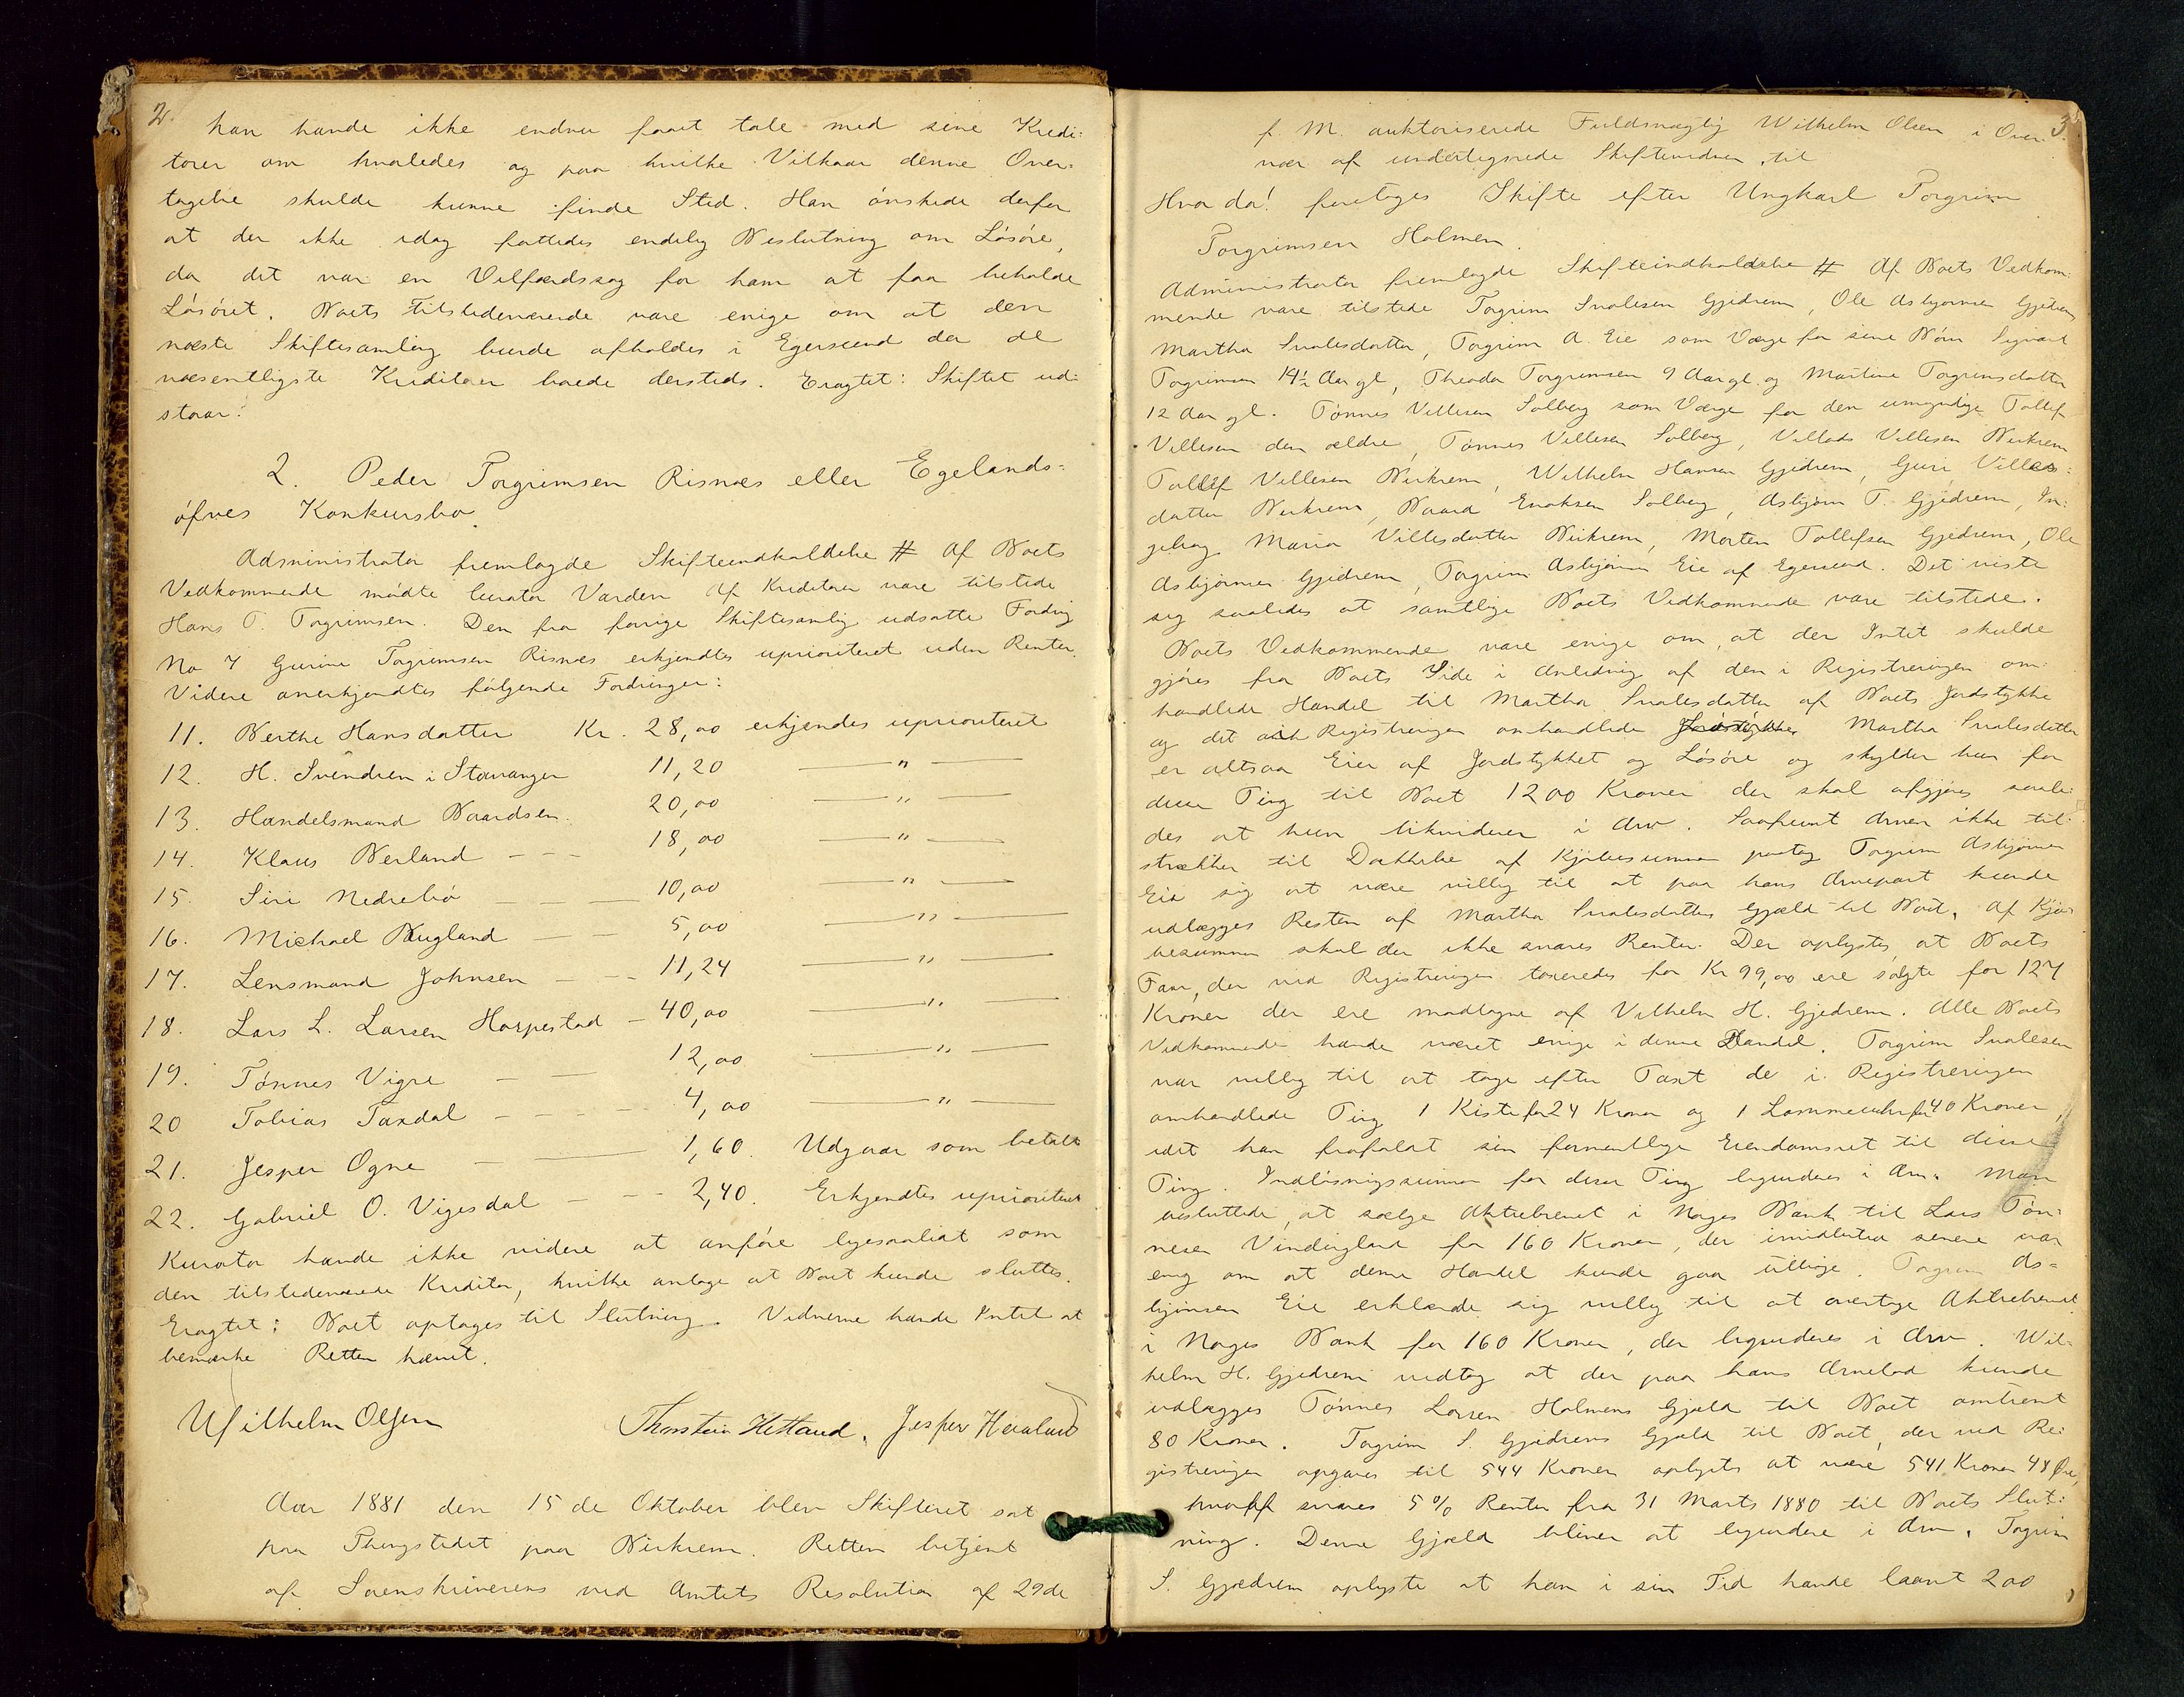 2.
han havde ikke endnu faaet tale med sine Kredi-
torer om hvorledes og paa hvilke Vilkaar denne Over-
tagelse skulde kunne finde Sted. Han ønskede derfor
at der ikke idag fattedes endelig Beslutning om Løsøre,
da det var en Velfærdssag for ham at faa beholde
Løsøret. Boets Tilstedeværende vare enige om at den
næste Skiftesamling burde afholdes i Egersund da de
væsentligste Kreditorer boede dersteds. Eragtet: Skiftet ud-
staar.
2. Peder Torgrimsen Risnæs eller Egelands-
øfnes Konkursbo.
Administrator fremlagde Skifteindkaldelse # Af Boets
Vedkommende mødte Curator Varden Af Kreditorer vare tilstede
Hans T. Torgrimsen. Den fra forrige Skiftesamling udsatte Fordring
No 7 Gurine Torgrimsen Risnæs erkjendtes uprioriteret uden Renter.
Videre anerkjendtes følgende Fordringer:
11. Berthe Hansdatter Kr. 28,00 erkjendes uprioriteret
12. H. Svendsen i Stavanger 11,20 — " —
13. Handelsmand Baardsen. 20,00 — " —
14. Klaus Berland - - - 18,00 — " —
15. Siri Nedrebø — — — 10,00 — " —
16. Michael Bugland — — 5,00 — " —
17. Lensmand Johnsen — - - 11,24 — " —
18. Lars L. Larsen Harpestad — 40,00 — " —
19. Tønnes Vigre — — 12,00 — " —
20 Tobias Taxdal - - - - 4,00 — " —
21. Jesper Ogne — — 1,60. Udgaar som betalt
22. Gabriel O. Vigesdal — - - 2,40. Erkjendtes uprioriteret
Kurator havde ikke videre at anføre ligesaalidt som
den tilstedeværende Kreditor, hvilke antage at Boet kunde sluttes.
Eragtet: Boet optages til Slutning. Vidnerne havde Intet at
bemærke Retten hævet.
Wilhelm Olsen Thorstein Hetland. Jesper Hovland
Aar 1881 den 15de Oktober blev Skifteret sat
paa Thingstedet paa Birkrem. Retten betjent
af Sorenskriverens ved Amtets Resolution af 29de
3
f. M. auktoriserede Fuldmægtig Wilhelm Olsen i Over-
vær af undertegnede Skiftevidner, til
Hvo da! foretoges Skifte efter Ungkarl Torgrim
Torgrimsen Holmen.
Administrator fremlagde Skifteindkaldelse # Af Boets Vedkom-
mende vare tilstede Torgrim Svalesen Gjedrem, Ole Asbjørnsen Gjedrem,
Martha Svalesdatter, Torgrim A. Eie som Værge for sine Børn Sigvart
Torgrimsen 14½ Aar gl, Theodor Torgrimsen 9 Aar gl. og Martine Torgrimsdatter
12 Aar gl. Tønnes Villesen Solberg som Værge for den umyndige Tollef
Villesen den ældre, Tønnes Villesen Solberg, Villads Villesen Birkrem
Tollef Villesen Birkrem, Wilhelm Hansen Gjedrem, Guri Villes-
datter Birkrem, Baard Enoksen Solberg, Asbjørn T. Gjedrem, In-
geborg Maria Villesdatter Birkrem, Morten Tollefsen Gjedrem, Ole
Asbjørnsen Gjedrem, Torgrim Asbjørnsen Eie af Egersund. Det viste
sig saaledes at samtlige Boets Vedkommende vare tilstede.
Boets Vedkommende vare enige om, at der Intet skulde
gjøres fra Boets Side i Anledning af den i Registreringen om-
handlede Handel til Martha Svalesdatter af Boets Jordstykke
og det i Registreringen omhandlede Martha Svalesdatter
er altsaa Eier af Jordstykket og Løsøre og skylder hun for
disse Ting til Boet 1200 Kroner der skal afgjøres saale-
des at hun likviderer i Arv. Saafremt Arven ikke til-
strækker til Dækkelse af Kjøbesummen paatog Torgrim Asbjørnsen
Eie sig at være villig til at paa hans Arvepart kunde
udlægges Resten af Martha Svalesdatters Gjæld til Boet. Af Kjø-
besummen skal der ikke svares Renter. Der oplystes, at Boets
Faar, der ved Registreringen taxeredes for Kr 99,00 ere solgte for 127
Kroner der ere modtagne af Vilhelm H. Gjedrem. Alle Boets
Vedkommende havde været enige i denne Handel. Torgrim Svalesen
var villig til at tage efter Taxt de i Registreringen
omhandlede Ting 1 Kiste for 24 Kroner og 1 Lommeuhr for 40 Kroner,
idet han frafaldt sin formentlige Eiendomsret til disse
Ting. Indløsningssummen for disse Ting ligvideres i Arv. Man
besluttede, at sælge Aktiebrevet i Norges Bank til Lars Tøn-
nesen Vindingland for 160 Kroner, der imidlertid senere var
enig om at denne Handel kunde gaa tilbage. Torgrim As-
bjørnsen Eie erklærede sig villig til at overtage Aktiebrevet
i Norges Bank for 160 Kroner, der ligvideres i Arv. Wil-
helm H. Gjedrem vedtog at der paa hans Arvelod kunde
udlægges Tønnes Larsen Holmens Gjæld til Boet omtrent
80 Kroner. Torgrim S. Gjedrems Gjæld til Boet, der ved Re-
gistreringen opgaves til 544 Kroner oplystes at være 541 Kroner 48 Øre,
hvoraf svares 5 % Renter fra 31 Marts 1880 til Boets Slut-
ning. Denne Gjæld bliver at ligvidere i Arv. Torgrim
S. Gjedrem oplyste at han i sin Tid havde laant 200